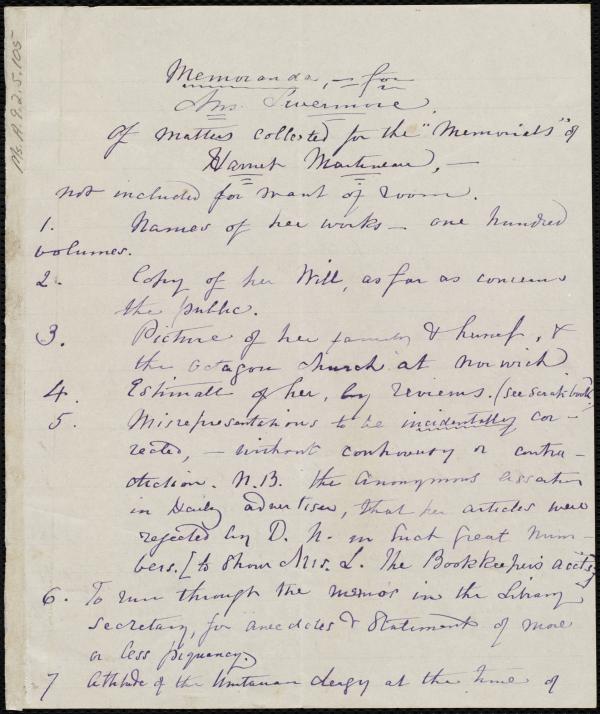 Ms. A. 9. 2. 5. 105
Memoranda, — for
Mrs. Livermore.
Of matters collected for the "Memorials" of
Harriet Martineau, —
not included for want of room.
1. Names of her works — one hundred
volumes.
2. Copy of her Will, as far as concerns
the public.
3. Picture of her family & herself, &
the octagon church at Norwich
4. Estimate of her, by reviews. (see scrapbook)
5. Misrepresentations to be incidentally cor-
rected, — without controversy or contra-
diction. N.B. the anonymous assertion
in Daily advertiser, that her articles were
rejected by D. N. in such great num-
bers. [to show Mrs. L. the Bookkeeper's accts]
6. To run through the memos in the Library
Secretary, for anecdotes & Statement of more
or less piquancy.
7 Attitude of the Unitarian clergy at the time of